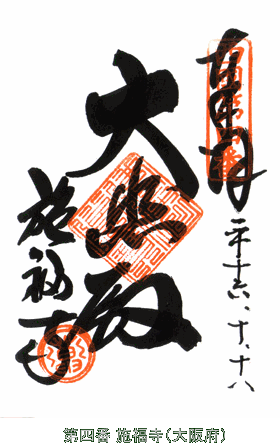 奉拝
西国第四番
平十六、十、十八
大悲殿
施福寺
第四番 施福寺(大阪府)